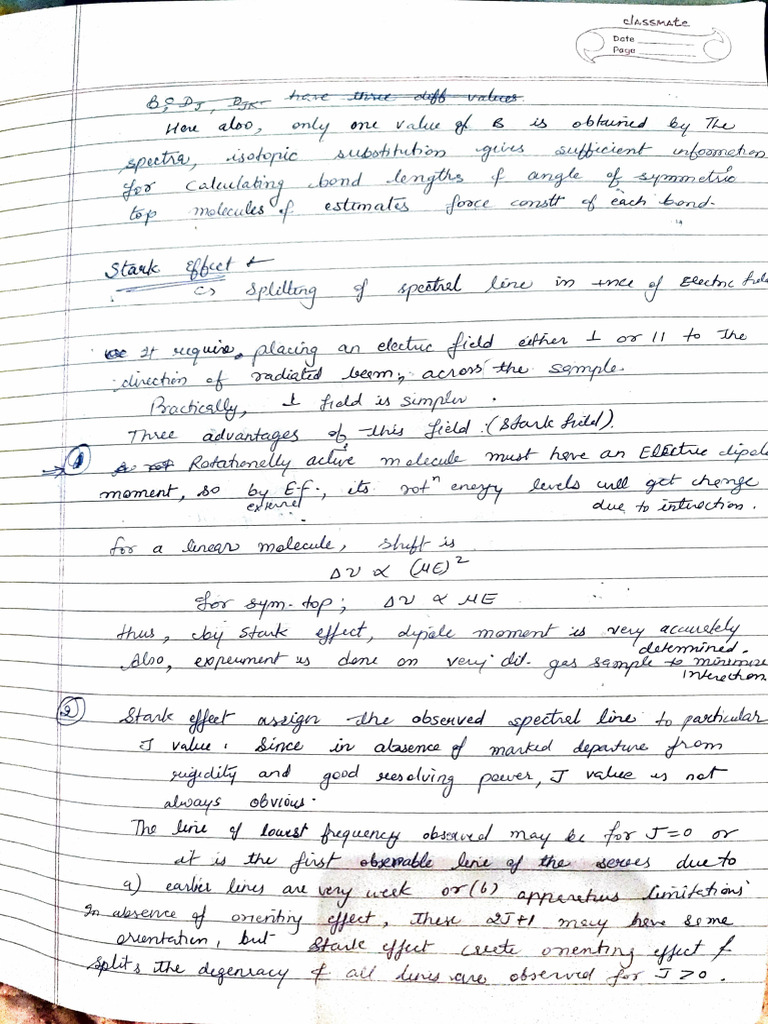 classmate
Date
Page
B, DJ, DJK have three diff values
Here also, only one value of B is obtained by The
spectra, isotopic substitution gives sufficient information
for calculating bond lengths & angle of symmetric
top molecules & estimates force constt of each bond.
Stark Effect
↳ splitting of spectral line in +nce of Electric field
It require placing an electric field either ⊥ or || to the
direction of radiated beam, across the sample.
Practically, ⊥ field is simpler.
Three advantages of this field. (Stark field).
→ ① Rotationally active molecule must have an Electric dipole
moment, so by E.F., its rotⁿ energy levels will get change
external due to interaction.
for a linear molecule, shift is
Δν ∝ (μE)²
for sym. top; Δν ∝ μE
thus, by Stark effect, dipole moment is very accurately
determined.
Also, experiment is done on very dil. gas sample to minimize
interaction
② Stark effect assign the observed spectral line to particular
J value. Since in absence of marked departure from
rigidity and good resolving power, J value is not
always obvious.
The line of lowest frequency observed may be for J=0 or
it is the first observable line of the series due to
a) earlier lines are very week or (b) apparatus limitations
In absence of orienting effect, these 2J+1 may have same
orientation, but Stark effect create orienting effect &
splits the degenracy & all lines are observed for J>0.